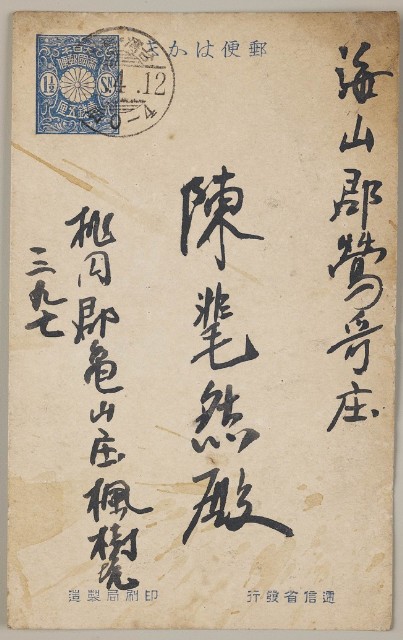 郵便はかき
1½ Sn.
4.12
海山郡鶯哥庄
陳然殿
桃円郡亀山庄楓樹坑
三九七
遞信省發行
印刷局製造